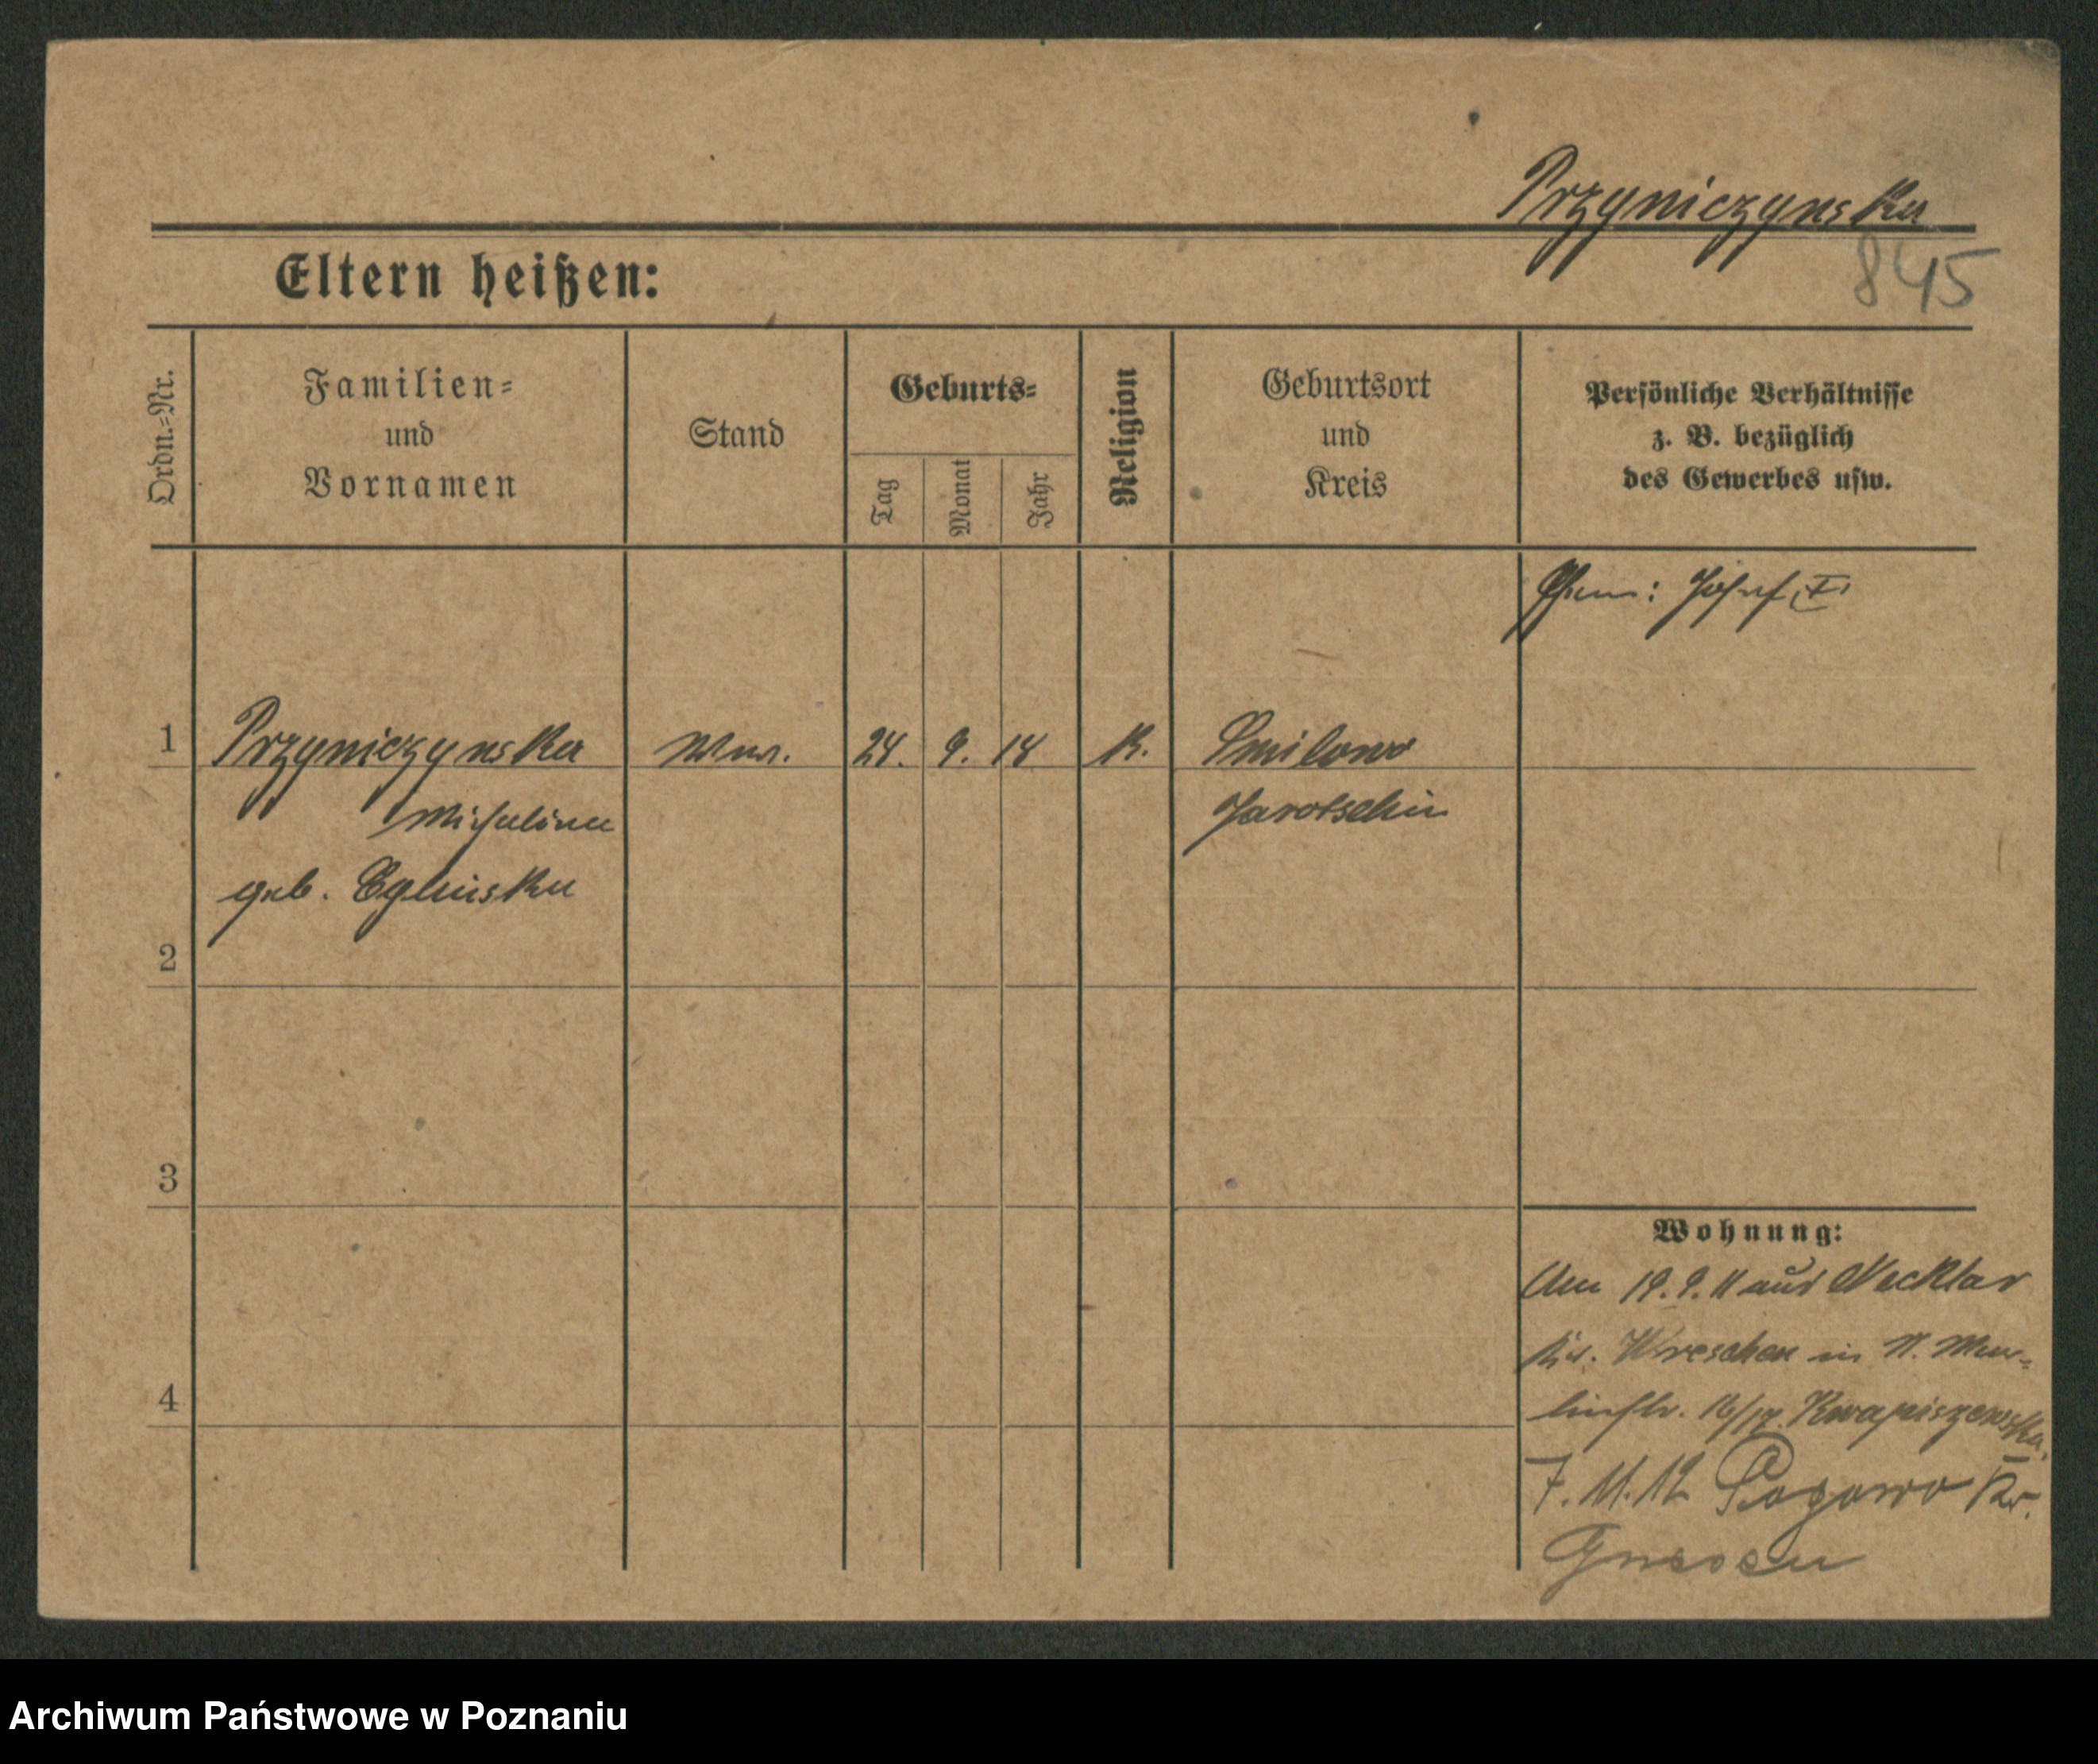 Przyniczynska
845
Eltern heißen:
Ordn.=Nr.
Familien=
und
Vornamen
Stand
Geburts=
Tag
Monat
Jahr
Religion
Geburtsort
und
Kreis
Persönliche Verhältnisse
z. B. bezüglich
des Gewerbes usw.
Josef
1 Przyniczynska Wwe. 24. 9. K. Smilowo
Michalina Jarotschin
geb.
2
3
Wohnung:
Am 19.9.11 aus Necklar
Kr. Wreschen in
4
16/17. Kwapiszewska.
7.11.12 Kr.
Gnesen
Archiwum Państwowe w Poznaniu